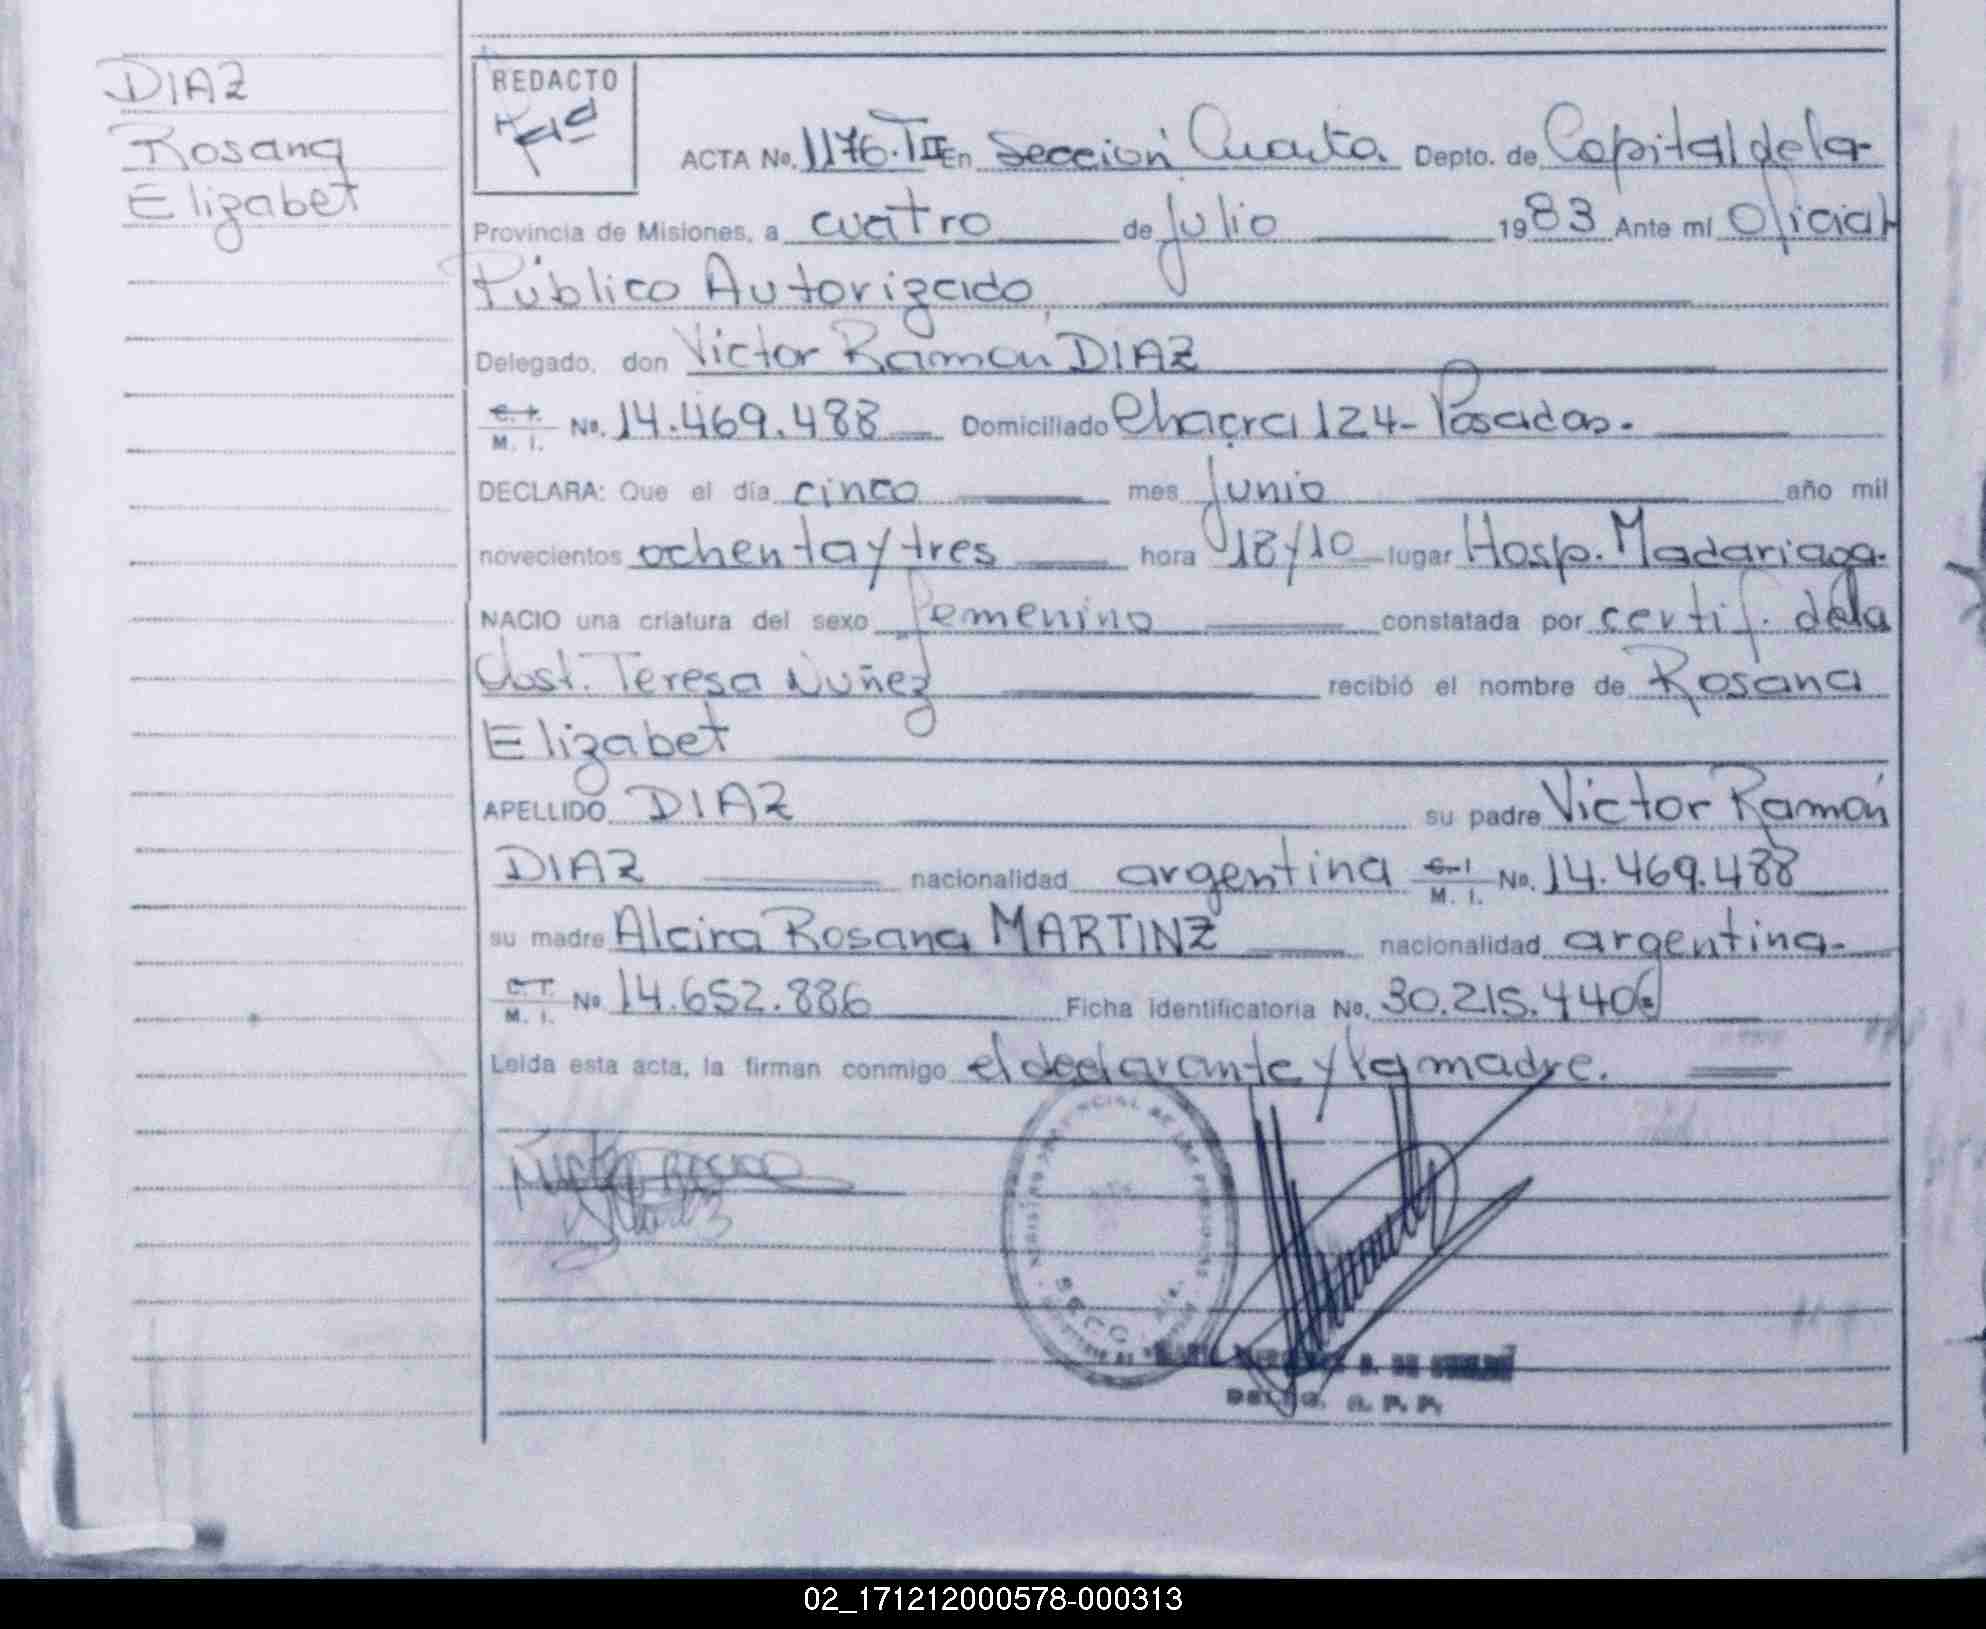 DIAZ
Rosana
Elizabet
REDACTO
ACTA No. 1176. TII En Sección Cuarta. Depto. de Capital de la
Provincia de Misiones, a cuatro de Julio 1983 Ante mí Oficial
Público Autorizado
Delegado, don Victor Ramón DIAZ
C. I. M. I. No. 14.469.488 Domiciliado Chacra 124- Posadas.
DECLARA: Que el día cinco mes Junio año mil
novecientos ochenta y tres hora 18/10 lugar Hosp. Madariaga.
NACIO una criatura del sexo femenino constatada por certif. de la
Obst. Teresa Nuñez recibió el nombre de Rosana
Elizabet
APELLIDO DIAZ su padre Victor Ramón
DIAZ nacionalidad argentina C. I. M. I. No. 14.469.488
su madre Alcira Rosana MARTINZ nacionalidad argentina.
C. I. M. I. No 14.652.886 Ficha identificatoria No. 30.215.440
Leída esta acta, la firman conmigo el declarante y la madre.
02_171212000578-000313